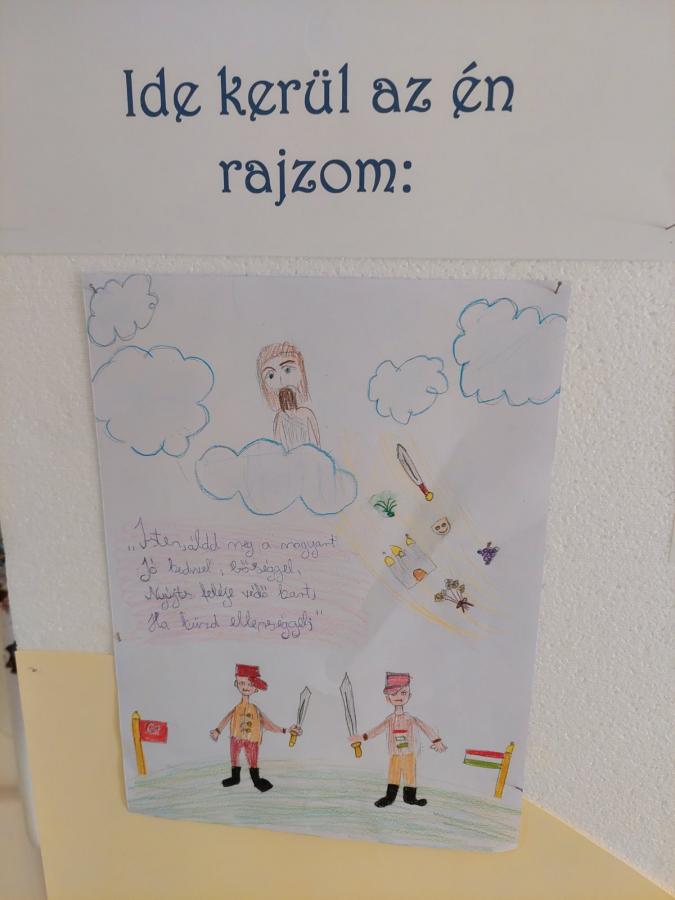 Ide kerül az én
rajzom:
„Isten, áldd meg a magyart
Jó kedvvel, bőséggel,
Nyújts feléje védő kart,
Ha küzd ellenséggel;"